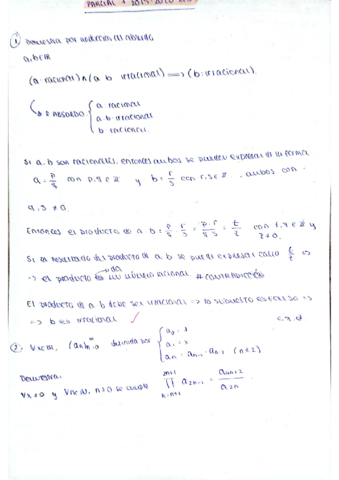 PARCIAL 1 2019-2020
① Demuestra por reducción al absurdo
a, b ∈ ℝ
(a racional) ∧ (a·b irracional) ⟹ (b irracional).
R. ABSURDO { a racional
a·b irracional
b racional.
Si a, b son racionales, entonces ambos se pueden expresar de la forma
a = p/q con p, q ∈ ℤ y b = r/s con r, s ∈ ℤ, ambos con
q, s ≠ 0.
Entonces el producto de a·b = p/q · r/s = p·r/q·s = t/z con t, z ∈ ℤ y
z ≠ 0.
Si el resultado del producto de a·b se puede expresar como t/z ⟹
⟹ el producto es un número racional. #CONTRADICCIÓN
El producto de a·b debe ser irracional ⟹ lo supuesto es falso ⟹
⟹ b es irracional ✓
c.q.d
② ∀n∈ℕ, definida por { a₀ = 1
a₁ = 1
aₙ = aₙ₋₁ · aₙ₋₂ (n≥2)
Demuestra:
y ∀n∈ℕ, n>0 se cumple